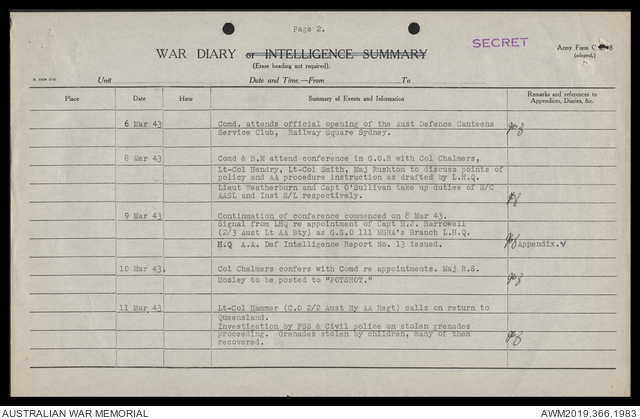 Page 2.
SECRET
WAR DIARY or INTELLIGENCE SUMMARY
Army Form C
(adapted.)
(Erase heading not required).
Unit Date and Time.—From To
Place Date Hour Summary of Events and Information Remarks and references to Appendices, Diaries, &c.
6 Mar 43 Comd, attends official opening of the Aust Defence Canteens
Service Club, Railway Square Sydney.
8 Mar 43 Comd & B.M attend conference in G.O.R with Col Chalmers,
Lt-Col Hendry, Lt-Col Smith, Maj Rushton to discuss points of
policy and AA procedure instruction as drafted by L.H.Q.
Lieut Weatherburn and Capt O'Sullivan take up duties of S/C
AASL and Inst S/L respectively.
9 Mar 43 Continuation of conference commenced on 8 Mar 43.
Signal from LHQ re appointment of Capt H.J. Harrowell
(2/3 Aust Lt AA Bty) as G.S.O 111 MGRA's Branch L.H.Q.
H.Q A.A. Def Intelligence Report No. 13 issued. Appendix. V
10 Mar 43. Col Chalmers confers with Comd re appointments. Maj R.S.
Mosley to be posted to "POTSHOT."
11 Mar 43 Lt-Col Hammer (C.O 2/2 Aust Hy AA Regt) calls on return to
Queensland.
Investigation by FSS & Civil police on stolen grenades
proceeding. Grenades stolen by children, many of them
recovered.
AUSTRALIAN WAR MEMORIAL AWM2019.366.1983